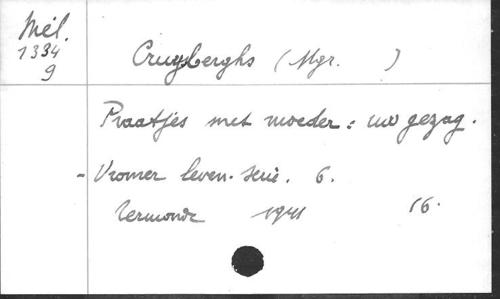 Mél.
1334
9
Cruysberghs (Mgr. )
Praatjes met moeder: uw gezag.
- Vromer leven. Serie. 6.
Dermonde 1941 16.